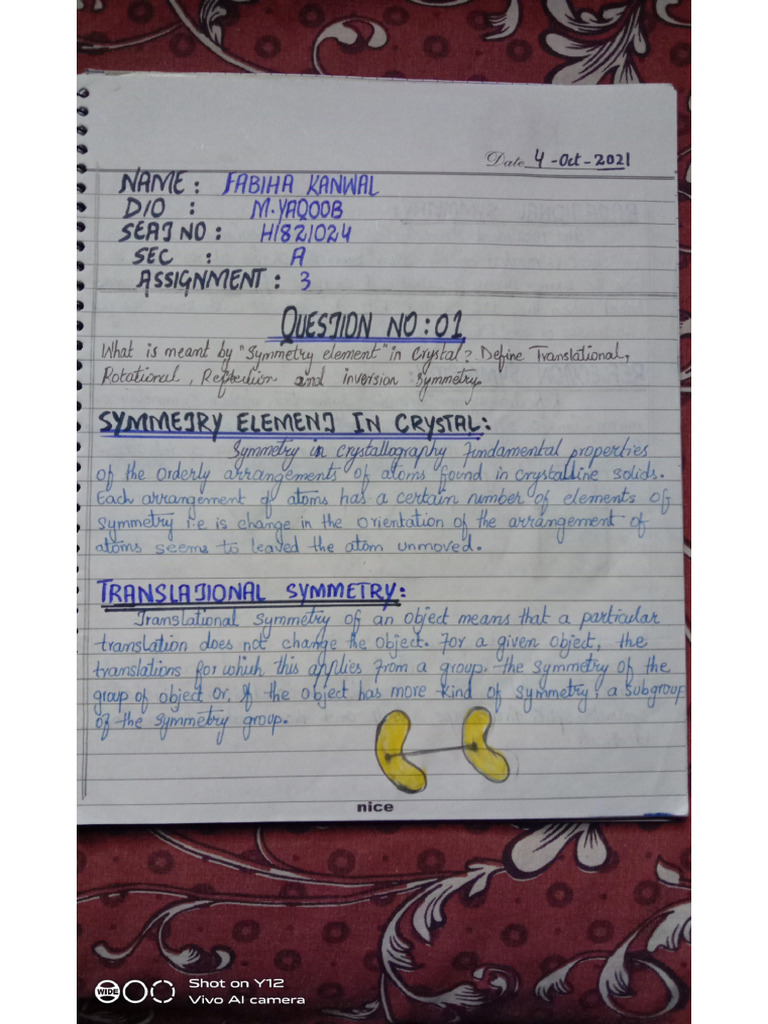 Date 4-Oct-2021
NAME : FABIHA KANWAL
D/O : M.YAQOOB
SEAT NO : H1821024
SEC : A
ASSIGNMENT : 3
QUESTION NO:01
What is meant by "Symmetry element" in Crystal? Define Translational,
Rotational, Reflection and inversion Symmetry.
SYMMETRY ELEMENT IN CRYSTAL:
Symmetry in crystallography Fundamental properties
of the Orderly arrangements of atoms found in crystalline solids.
Each arrangement of atoms has a certain number of elements of
symmetry i.e is change in the orientation of the arrangement of
atoms seems to leaved the atom unmoved.
TRANSLATIONAL SYMMETRY:
Translational symmetry of an object means that a particular
translation does not change the object. For a given object, the
translations for which this applies From a group. the symmetry of the
group of object or, if the object has more kind of symmetry, a subgroup
of the symmetry group.
nice
WIDE
Shot on Y12
Vivo AI camera